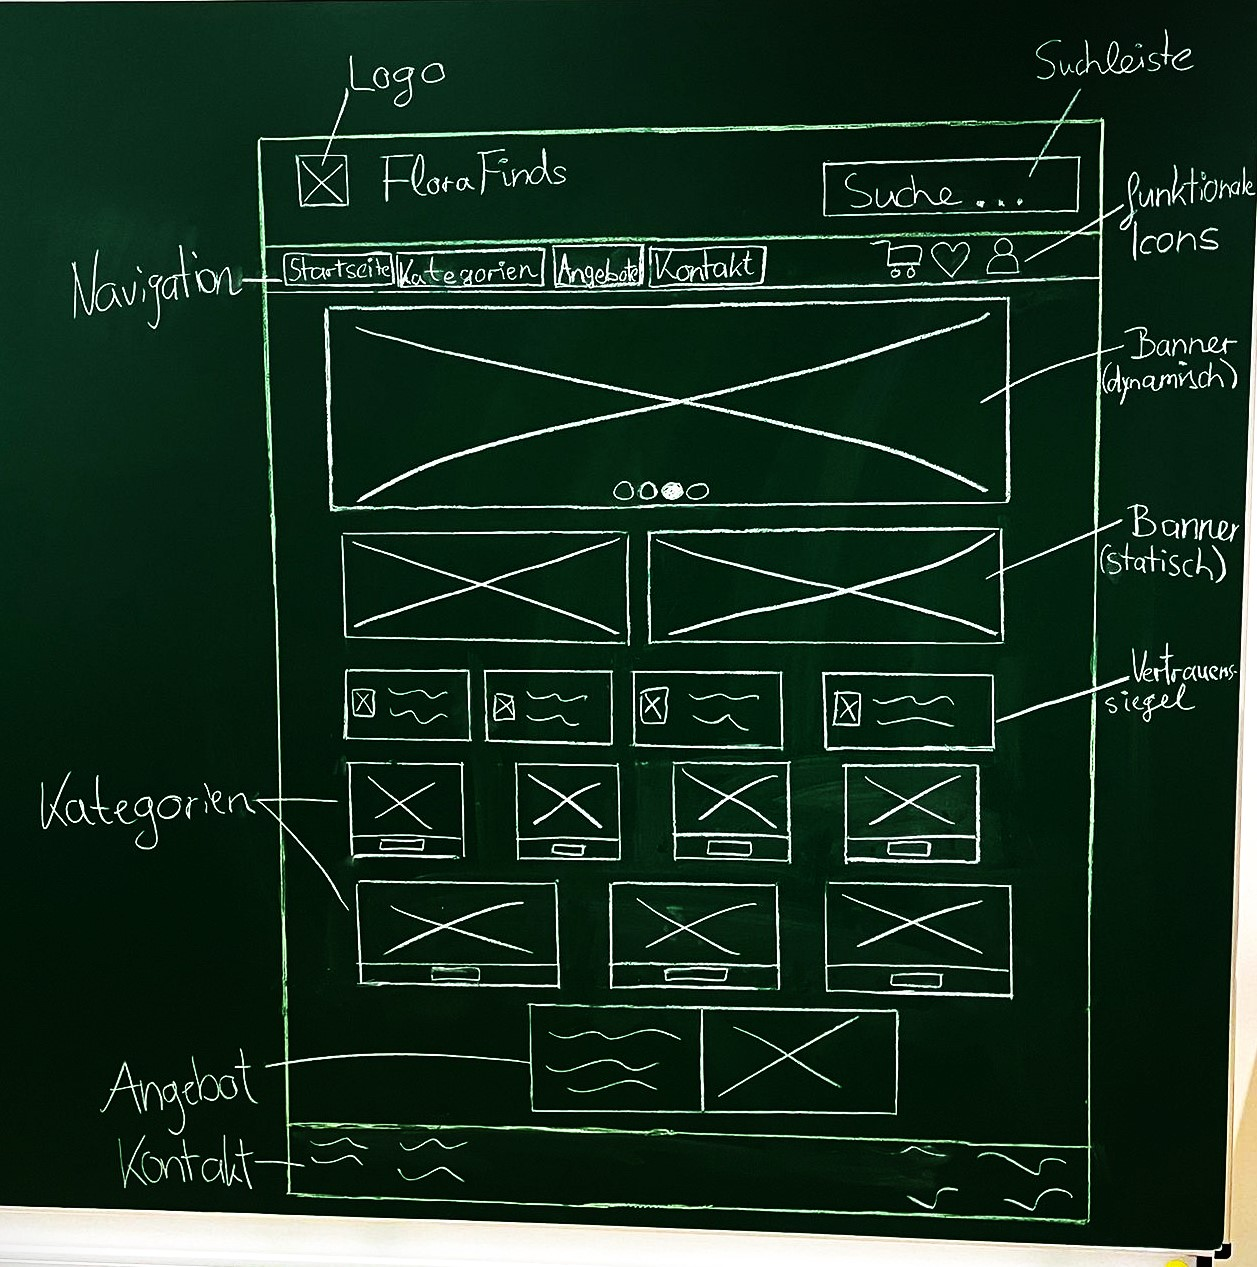 Logo
Suchleiste
FloraFinds
Suche...
funktionale
Icons
Navigation
Startseite Kategorien Angebote Kontakt
Banner
(dynamisch)
Banner
(statisch)
Vertrauens-
siegel
Kategorien
Angebot
Kontakt